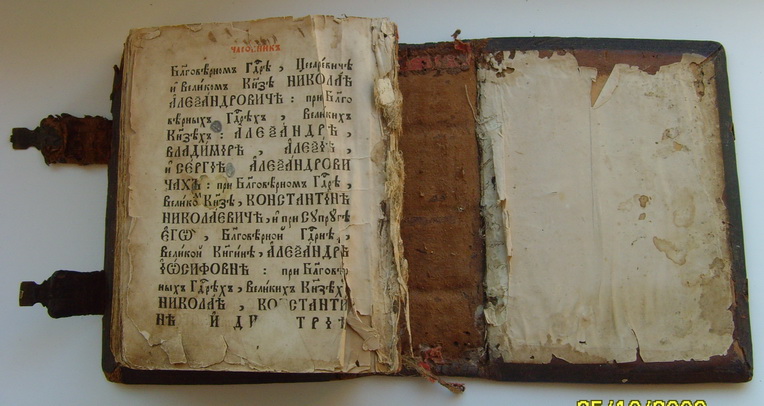 ЧАСОВНИКЪ
Бл҃говѣрномъ Гдⷭ҇рѣ, Цесаревичѣ
и҆ Великомъ Кн҃зѣ НИКОЛАѢ
А҆ЛЕѮАНДРОВИЧѢ : при Бл҃го
вѣрныхъ Гдⷭ҇рѣхъ , Великихъ
Кн҃зѣхъ : А҆ЛЕѮАНДРѢ ,
ВЛАДИМІРѢ , А҆ЛЕѮІѢ ,
и҆ СЕРГІѢ А҆ЛЕѮАНДРОВИ
ЧАХЪ : при Бл҃говѣрномъ Гдⷭ҇рѣ ,
Великомъ Кн҃зѣ, КОНСТАНТІНѢ
НИКОЛАЕВИЧѢ , и҆ при Сꙋпрꙋгѣ
Є҆ГѠ̀ , Бл҃говѣрной Гдⷭ҇рнѣ ,
Великой Кн҃гинѣ, А҆ЛЕѮАНДРѢ
І҆ѠСИФОВНѢ : при Бл҃говѣр
ныхъ Гдⷭ҇рѣхъ , Великихъ Кн҃зѣхъ
НИКОЛАѢ , КОНСТАНТИ
НѢ И҆ ТРІѢ